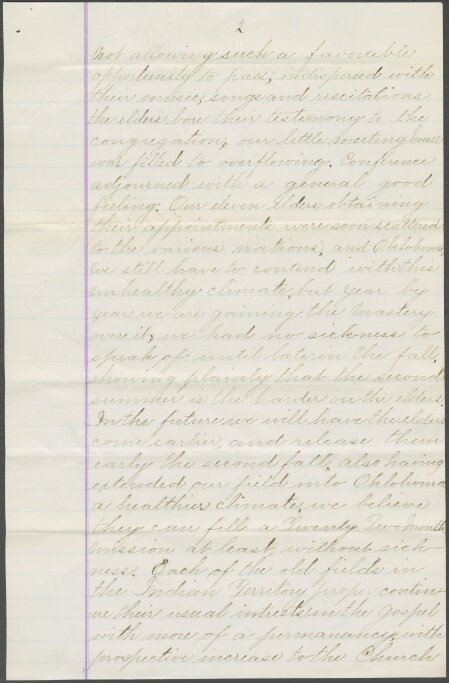 2
not allowing such a favorable
opportunity to pass, indispersed with
their music, songs and riscitations
the elders bore their testimony to the
congregation, our little meetinghouse
was filled to overflowing. Conference
adjourned with a general good
feeling. Our eleven elders obtaining
their appointments were soon scattered
to the various nations, and Oklohoma
we still have to contend with this
unhealthy climate, but year by
year we are gaining the mastery
over it, we had no sickness to
speak of until late in the fall,
showing plainly that the second
summer is the harder on the elders.
In the future we will have the elders
come earlier, and release them
early the second fall. also having
extended our field into Oklohoma
a healthier climate, we believe
they can fill a Twenty Two month
mission at least, without sick-
ness. Each of the old fields in
the Indian Territory proper contin-
ue their usual intrests in the Gospel
with more of a permanancy, with
prospective increase to the Church